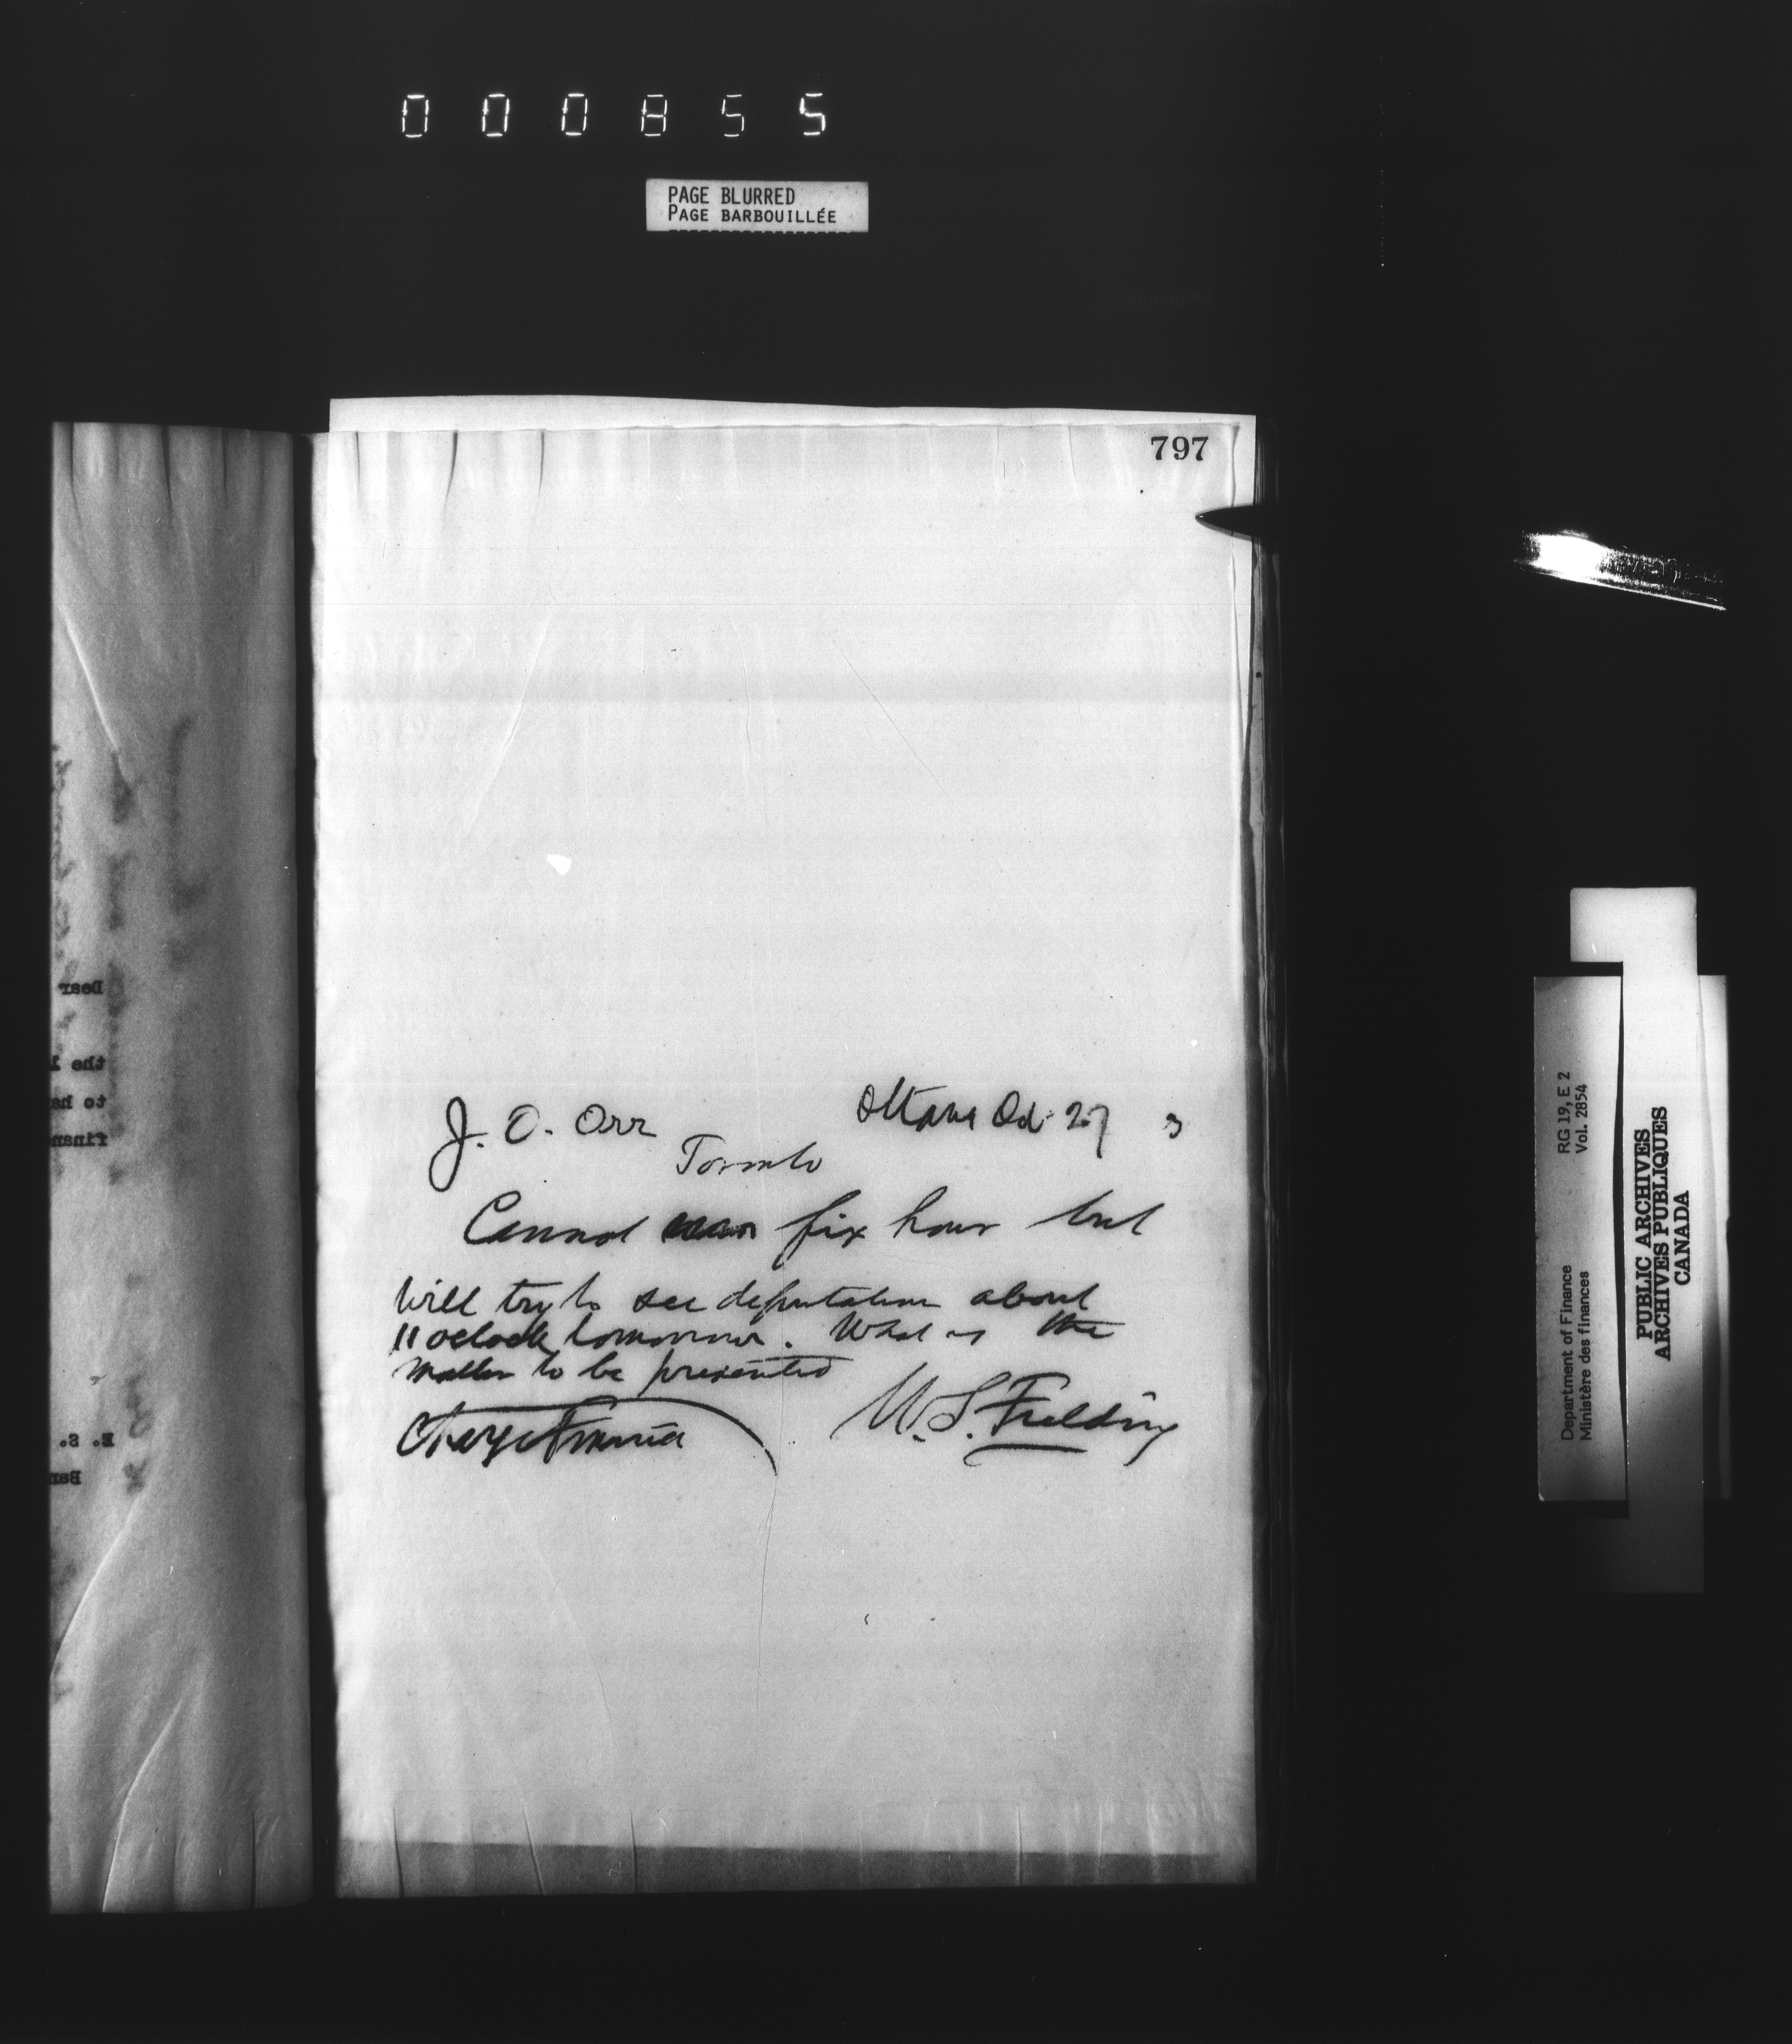 000855
PAGE BLURRED
PAGE BARBOUILLÉE
797
Ottawa Oct 27 3
J. O. Orr
Toronto
Cannot fix hour but
will try to see deputation about
11 oclock tomorrow. What is the
matter to be presented
W. S. Fielding
Charge Finance
Dear
the
to ha
finan
E. S.
Ban
RG 19, E 2
Vol. 2854
Department of Finance
Ministère des finances
PUBLIC ARCHIVES
ARCHIVES PUBLIQUES
CANADA